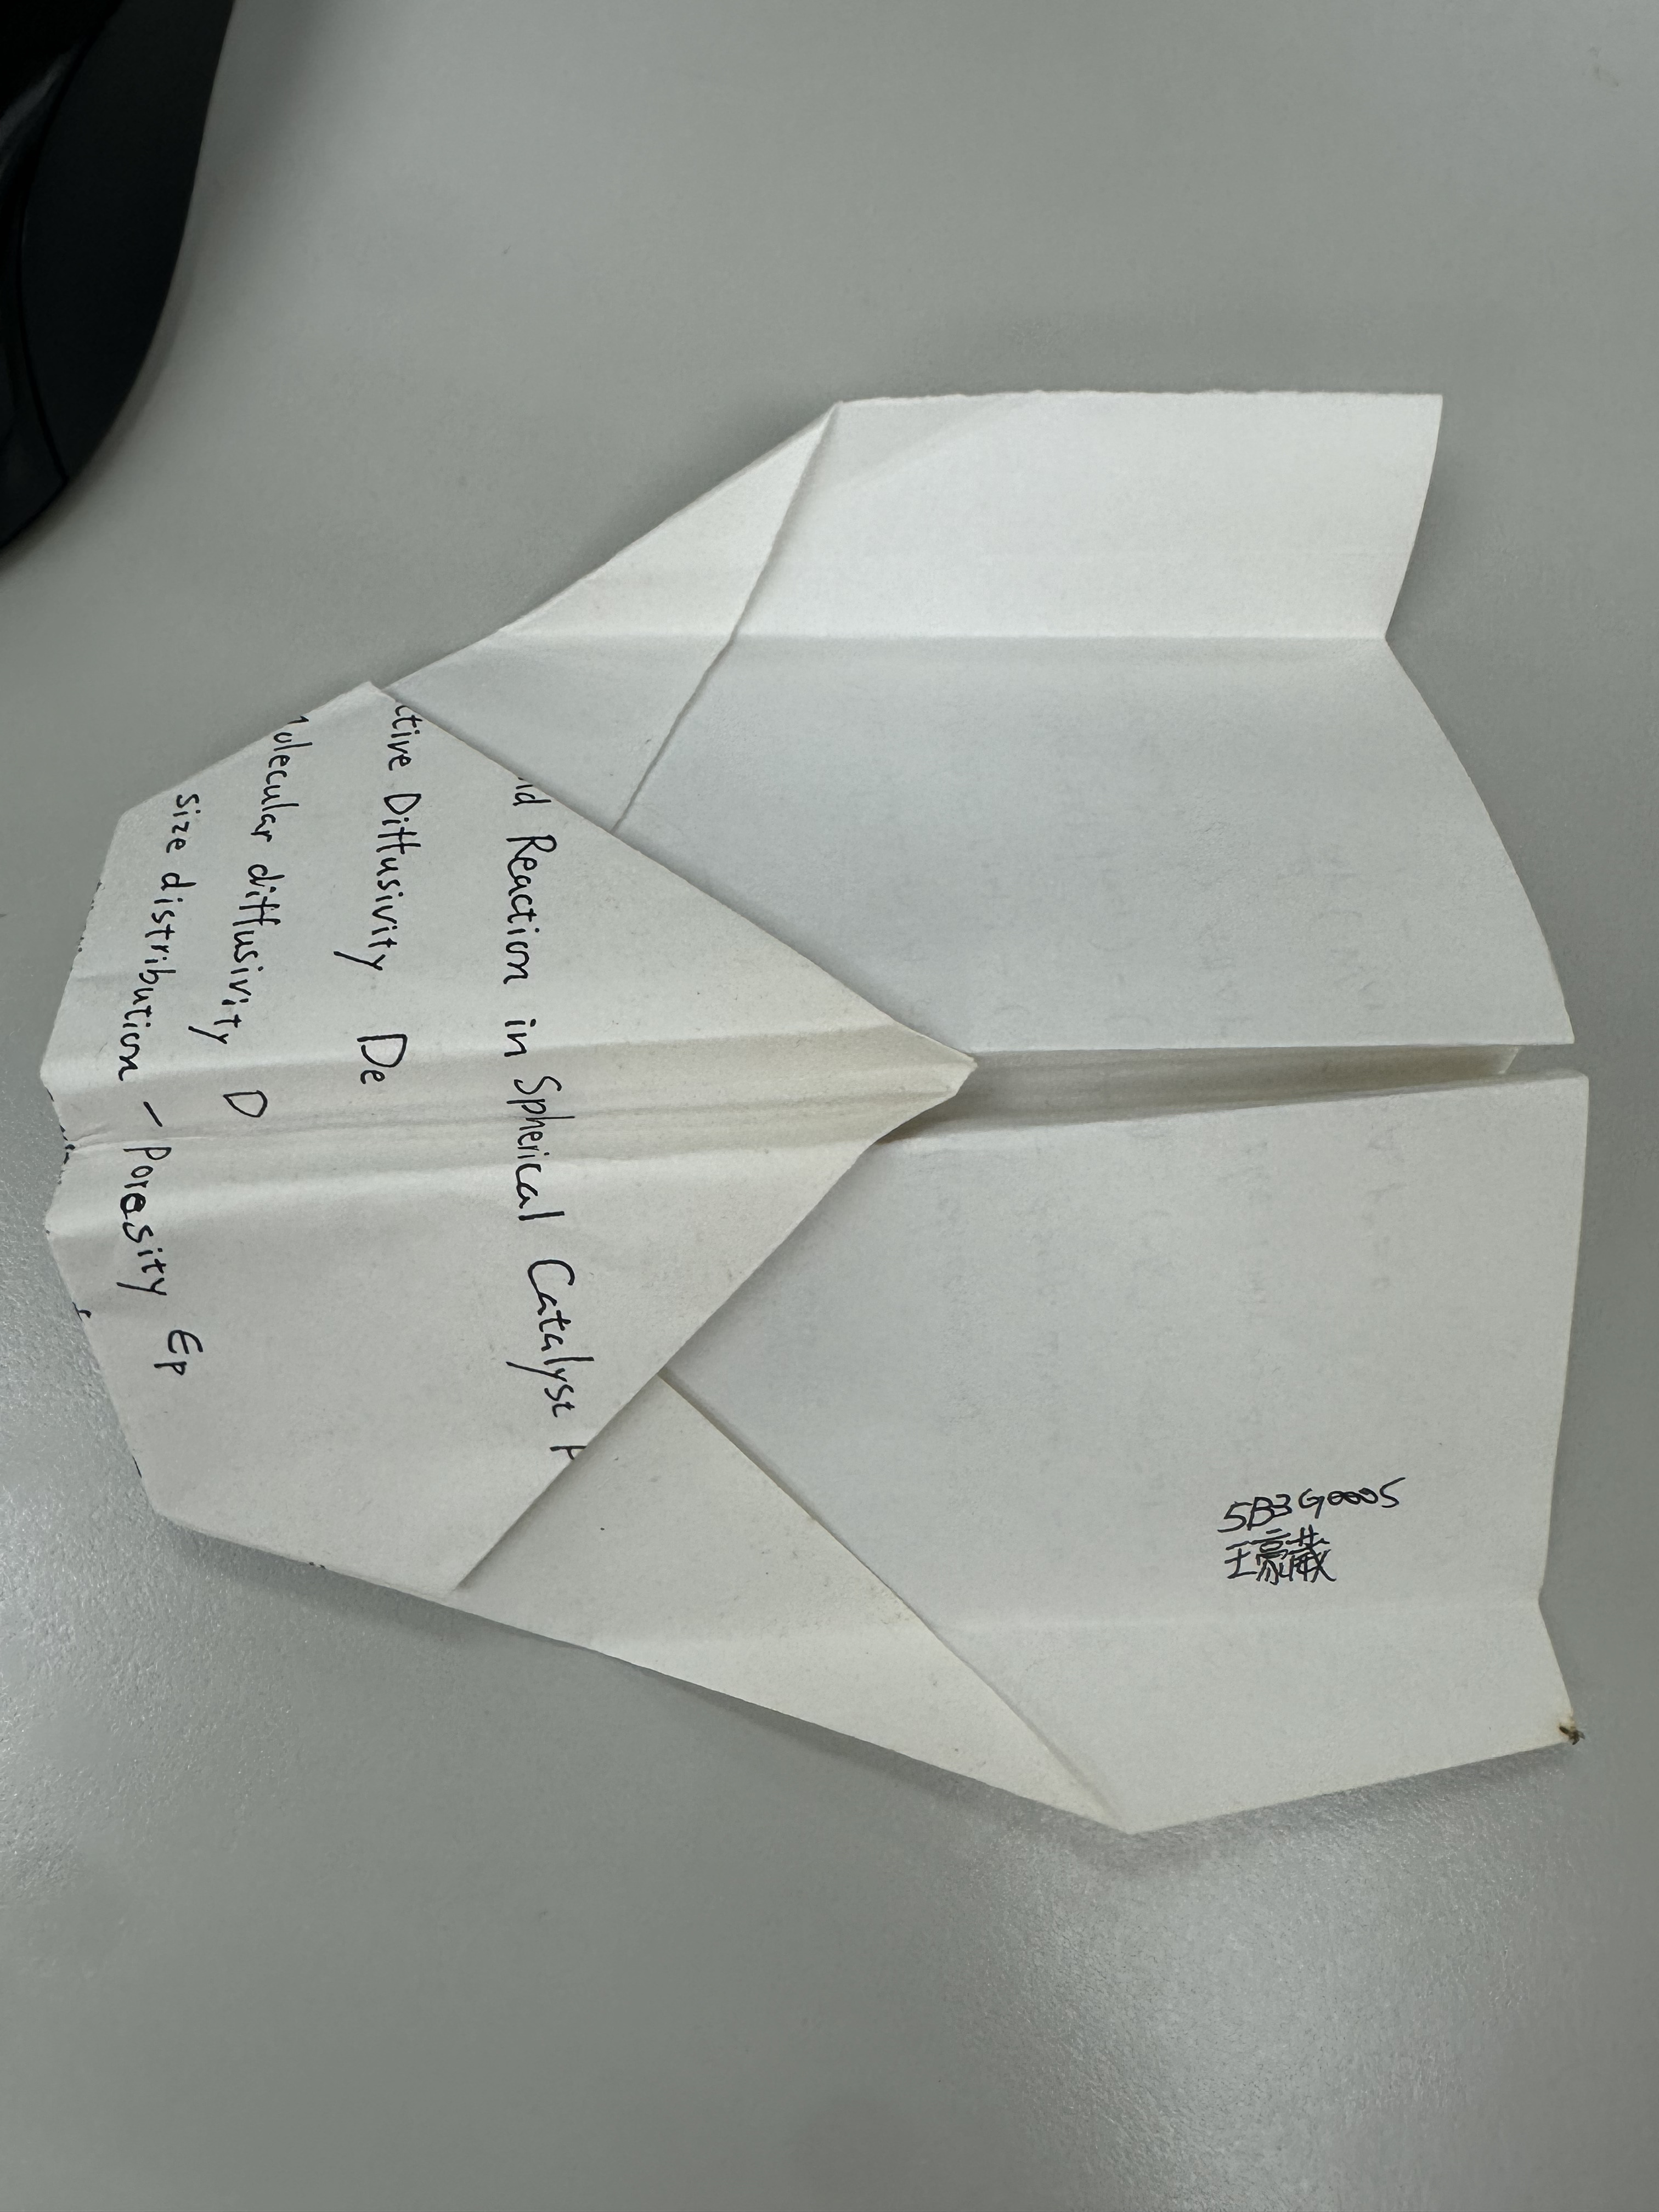 nd Reaction in Spherical Catalyst P
ctive Diffusivity De
Molecular diffusivity D
size distribution - Porosity Ep
5B3G0005
王豪葳